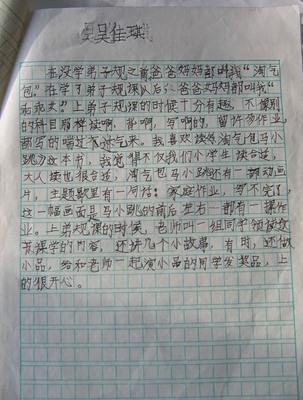 吴佳琪
在没学弟子规之前爸爸妈妈都叫我“淘气
包”在学了弟子规以后爸爸妈妈都叫我“
乖乖女”上弟子规课的时候十分有趣，不像别
的科目那样读啊，背啊，写啊的，留许多作业，
都写的喘过不来气来。我喜欢读《淘气包马小
跳》这本书，我觉得不仅我们小学生读合适，
大人读也很合适，淘气包马小跳还有一部动画
片，主题歌里有一句话：家庭作业，写不完了，
这一幅画面是马小跳的前后左右一都有一摞作
业。上弟子规的时候，老师叫一组同学领读这
节课学的内容，还讲几个小故事，有时，还做
小品，给和老师一起演小品的同学发奖品，上
的很开心。